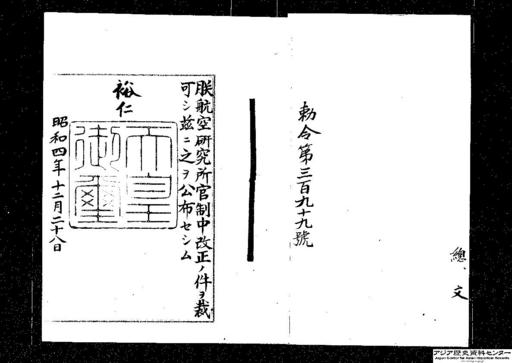 勅令第三百九十九號
總、文
朕航空研究所官制中改正ノ件ヲ裁
可シ玆ニ之ヲ公布セシム
裕仁
天皇
御璽
昭和四年十二月二十八日
アジア歴史資料センター
Japan Center for Asian Historical Records